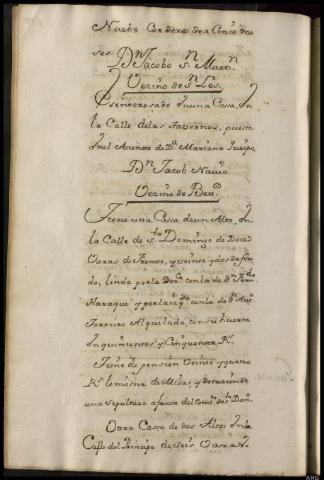 Nuebe Corderos de a Cinco me
ses.
Dn. Jacobo Sn. Martin
Vezino de Sn.
Es interesado en una Casa, en
la Calle de las Tavernas, puesta
en el Asiento de Da. Mariana
Dn. Jacob
Vezino de
Tiene una Cassa de un Alto, en
la Calle de sto. Domingo de Doze
Varas de frente, y veinte y dos de fon
do, linda por la Dra. con la de Dn.
y por la izqda. con la de Dn.
Alquilada, con su huerta
en quinientos y cinquenta Rs.
Tiene de pension veinte y quatro
Rs. limosna de Misas, y dotazion de
una sepultura a favor del Conto. de sto. Domo.
Otra Cassa de dos Altos en la
Calle del Principe de seis Varas
ARG